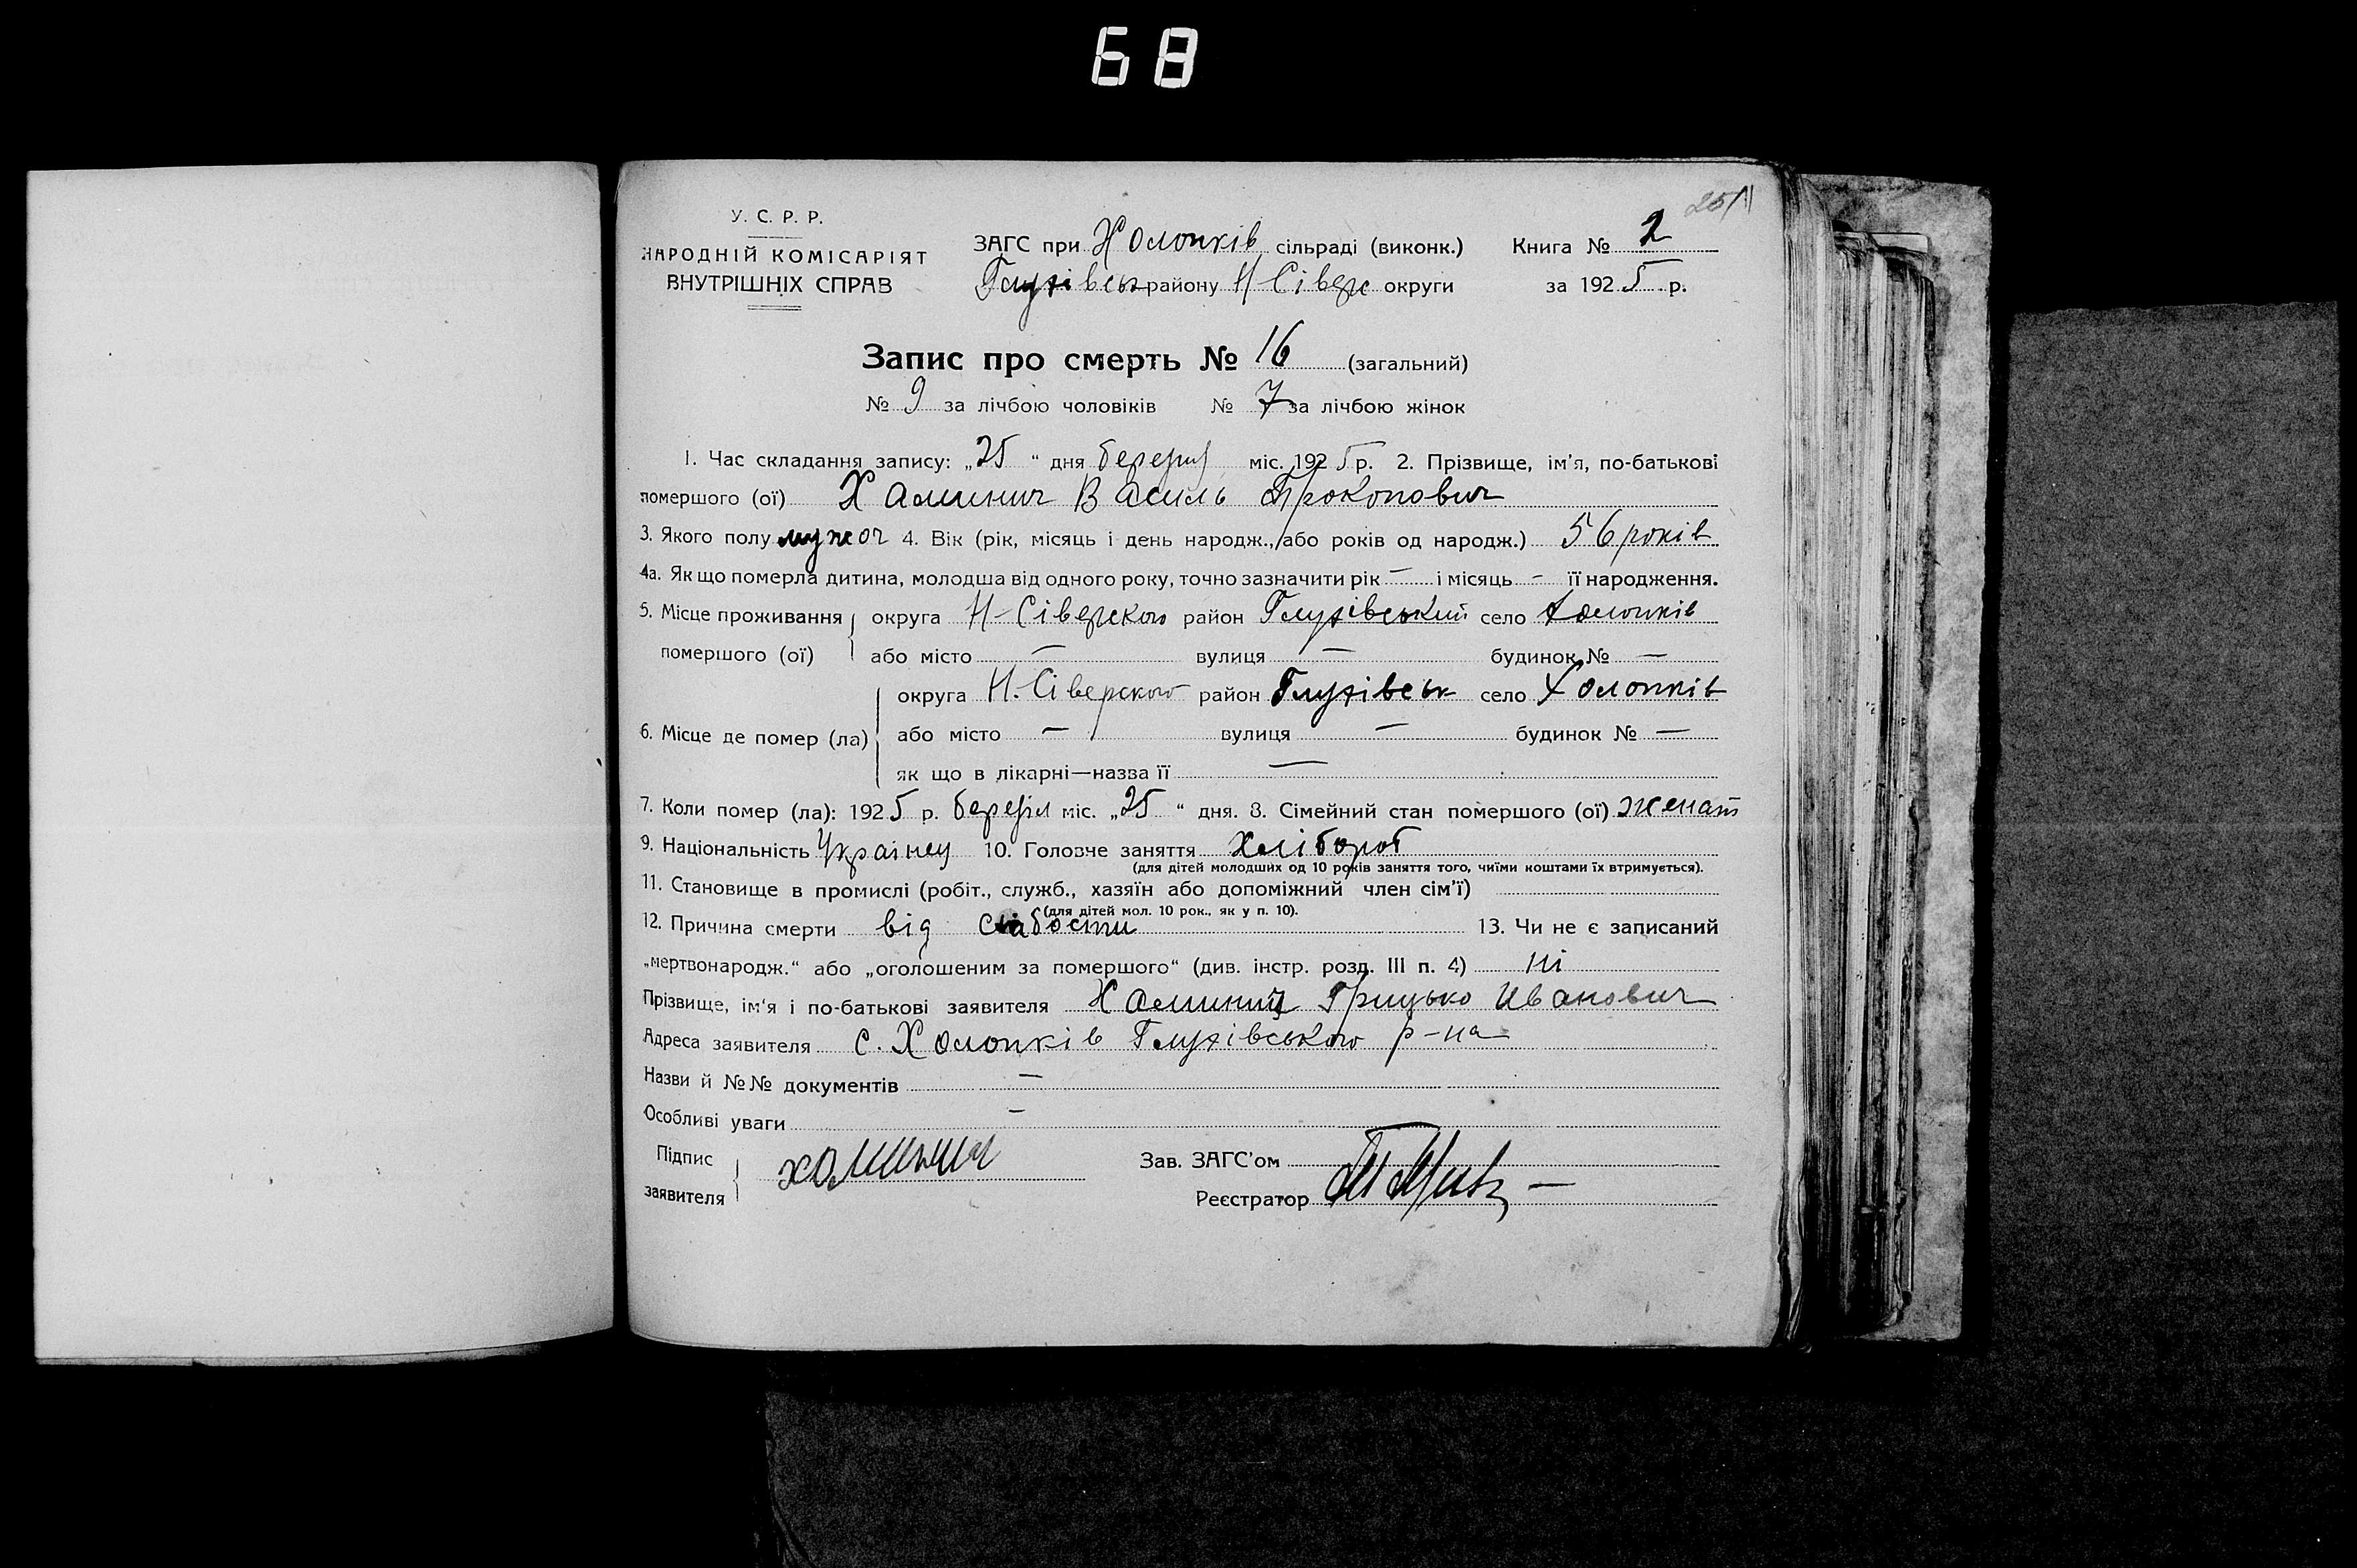 68
251
У. С. Р. Р.
НАРОДНІЙ КОМІСАРІЯТ
ВНУТРІШНІХ СПРАВ
ЗАГС при Холопків сільраді (виконк.) Книга № 2
Глухівськ району Н-Сіверс округи за 1925 р.
Запис про смерть № 16 (загальний)
№ 9 за лічбою чоловіків № 7 за лічбою жінок
1. Час складання запису: „25“ дня березня міс. 1925 р. 2. Прізвище, ім'я, по-батькові
помершого (ої) Халимич Василь Прокопович
3. Якого полу мужеч 4. Вік (рік, місяць і день народж., або років од народж.) 56 років
4а. Як що померла дитина, молодша від одного року, точно зазначити рік — і місяць - її народження.
5. Місце проживання помершого (ої) округа Н-Сіверского район Глухівський село Холопків
або місто — вулиця — будинок № —
6. Місце де помер (ла) округа Н.-Сіверского район Глухівськ село Холопків
або місто — вулиця — будинок № —
як що в лікарні—назва її —
7. Коли помер (ла): 1925 р. березіл міс. „25“ дня. 8. Сімейний стан помершого (ої) женат
9. Національність Українец 10. Головче заняття Хлібороб
(для дітей молодших од 10 років заняття того, чиїми коштами їх втримується).
11. Становище в промислі (робіт., служб., хазяїн або допоміжний член сім'ї)
(для дітей мол. 10 рок., як у п. 10).
12. Причина смерти від слабости 13. Чи не є записаний
„мертвонародж.“ або „оголошеним за помершого“ (див. інстр. розд. III п. 4) ні
Прізвище, ім'я і по-батькові заявителя Грицько Иванович
Адреса заявителя с. Холопків Глухівського р-на
Назви й №№ документів —
Особливі уваги -
Підпис заявителя
Зав. ЗАГС'ом
Реєстратор